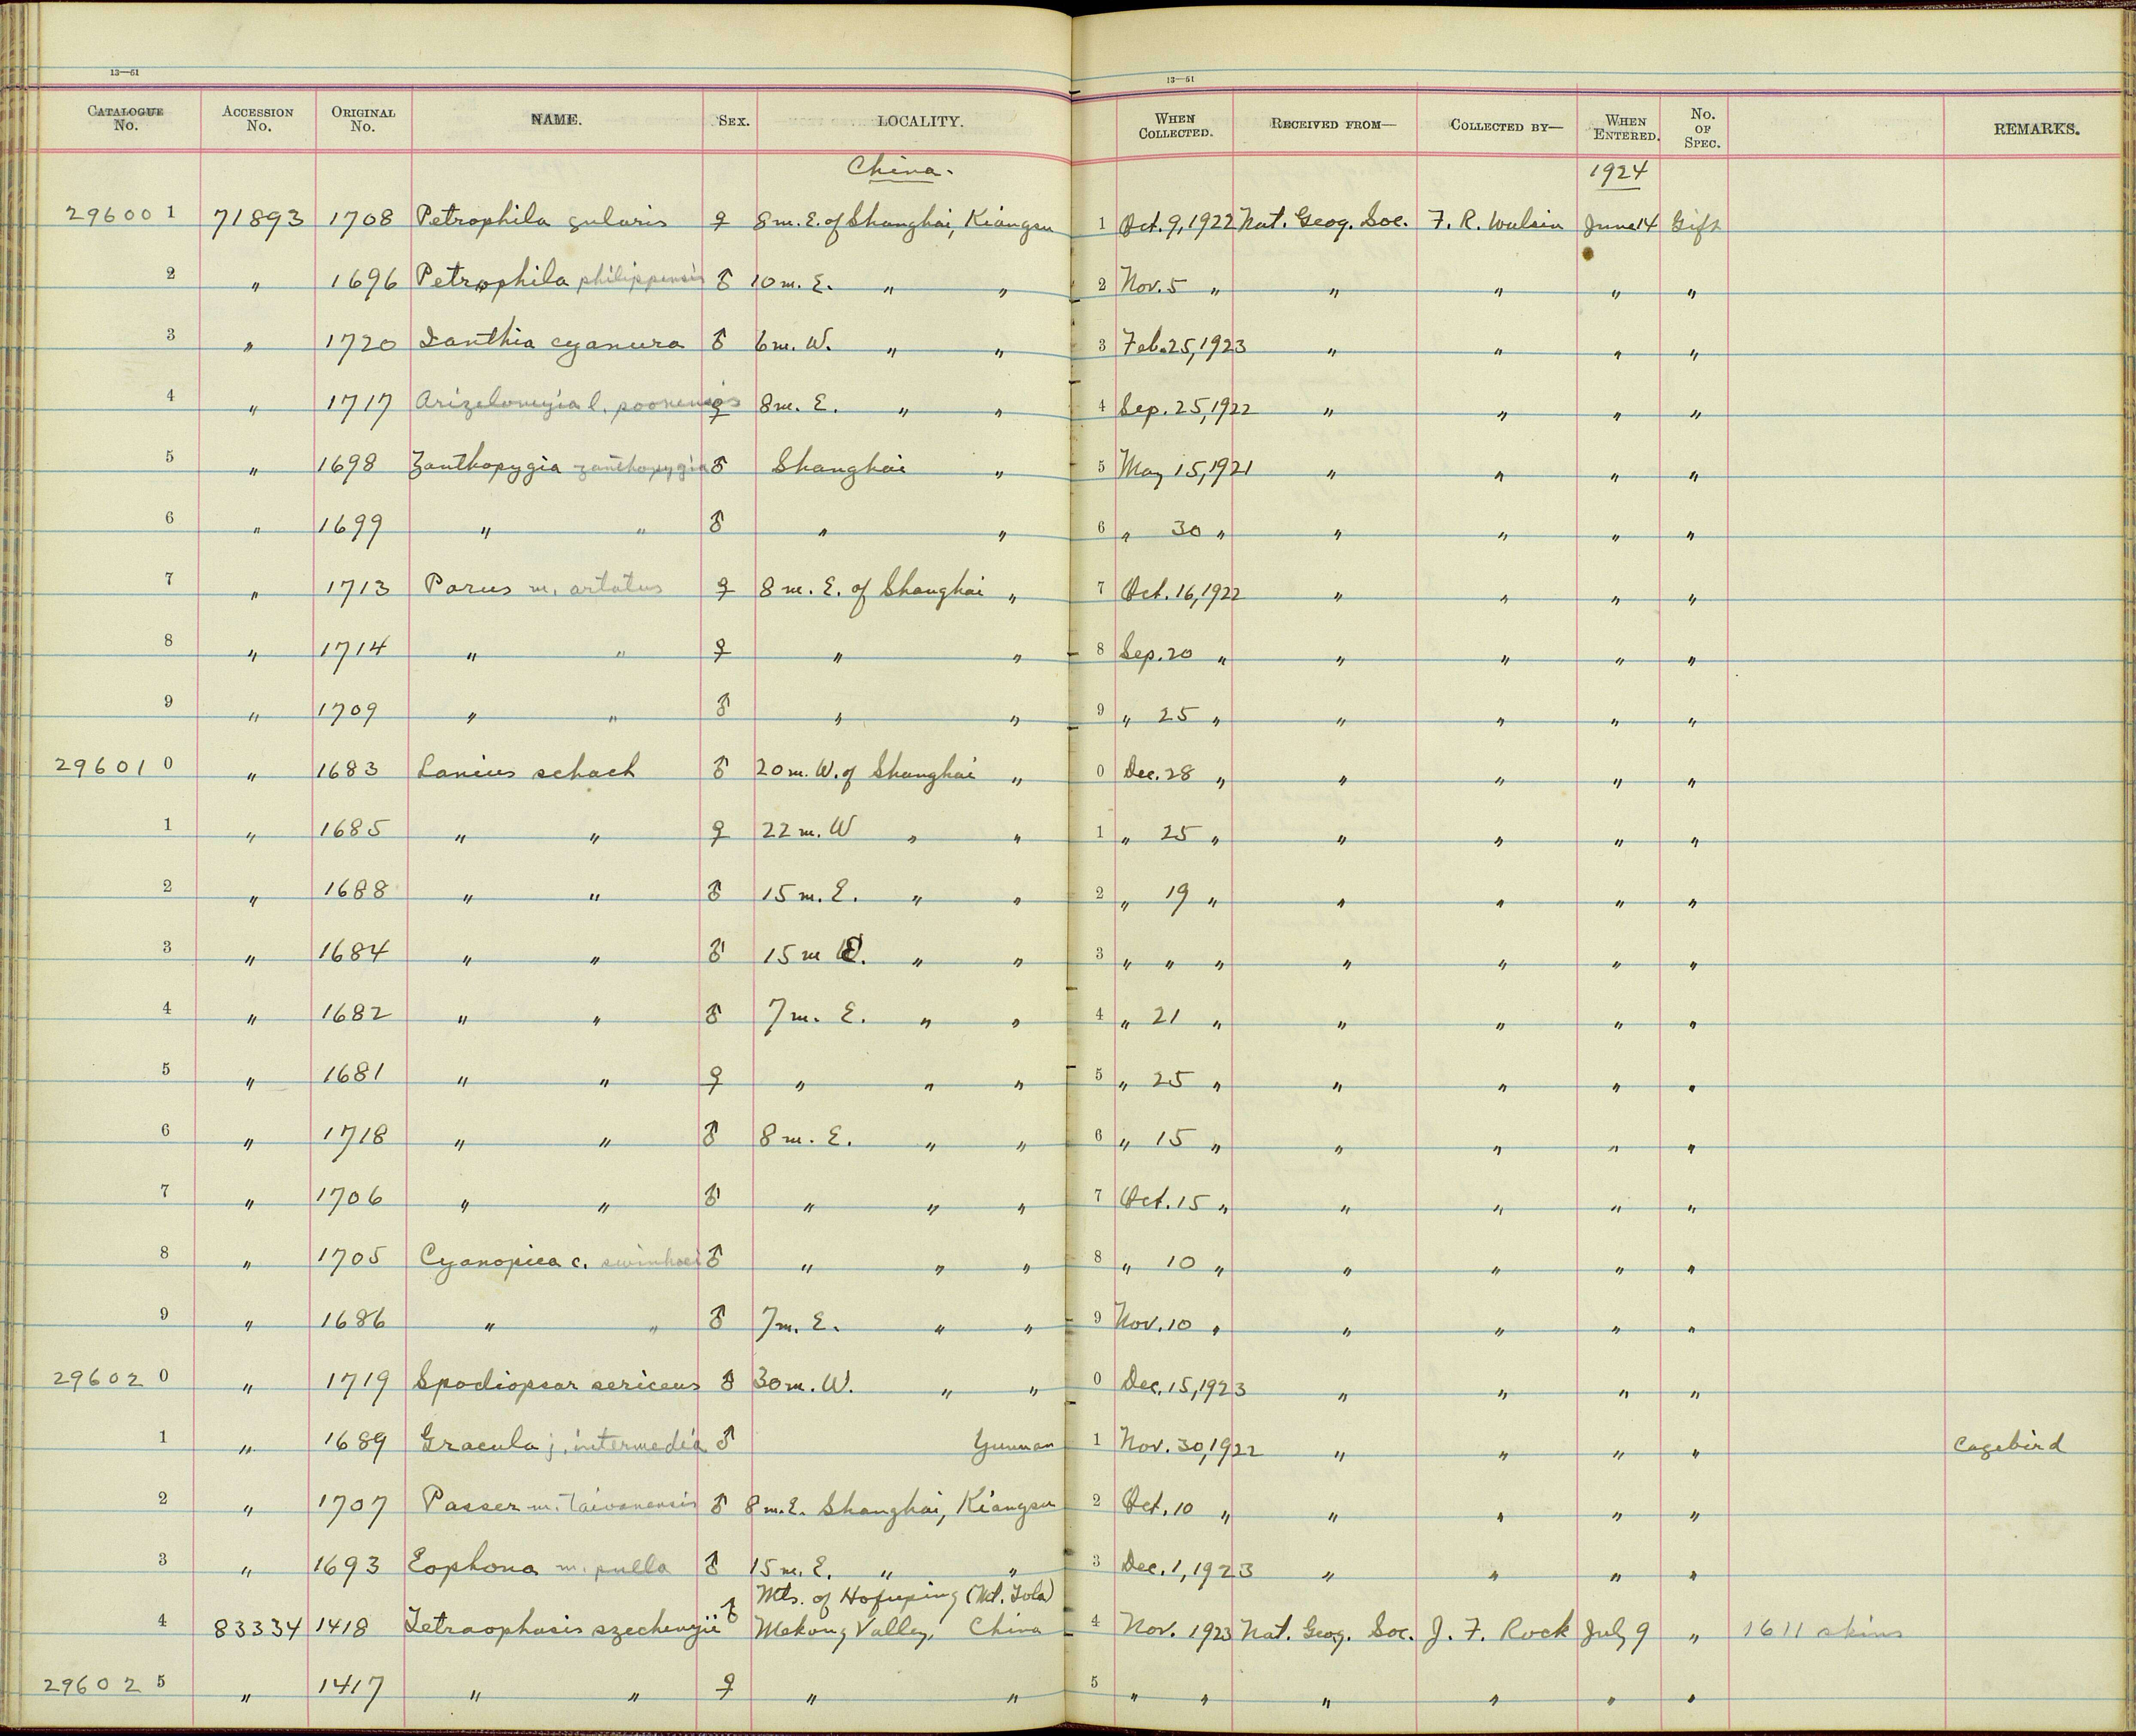 13—61 13—61
CATALOGUE No. ACCESSION No. ORIGINAL No. NAME. SEX. LOCALITY. WHEN COLLECTED. RECEIVED FROM— COLLECTED BY— WHEN ENTERED. No. OF SPEC. REMARKS.
China. 1924
29600 1 71893 1708 Petrophila gularis ♀ 8 m. E. of Shanghai, Kiangsu 1 Oct. 9, 1922 Nat. Geog. Soc. F. R. Wulsin June 14 Gift
2 " 1696 Petrophila philippensis ♂ 10 m. E. " " 2 Nov. 5 " " " " "
3 " 1720 Ianthia cyanura ♂ 6 m. W. " " 3 Feb. 25, 1923 " " " "
4 " 1717 Arizelomyia l. poonensis ♀ 8 m. E. " " 4 Sep. 25, 1922 " " " "
5 " 1698 Zanthopygia zanthopygia ♂ Shanghai " 5 May 15, 1921 " " " "
6 " 1699 " " ♂ " " 6 " 30 " " " " "
7 " 1713 Parus m. artatus ♀ 8 m. E. of Shanghai " 7 Oct. 16, 1922 " " " "
8 " 1714 " " ♀ " " 8 Sep. 20 " " " " "
9 " 1709 " " ♂ " " 9 " 25 " " " " "
29601 0 " 1683 Lanius schach ♂ 20 m. W. of Shanghai " 0 Dec. 28 " " " " "
1 " 1685 " " ♀ 22 m. W " " 1 " 25 " " " " "
2 " 1688 " " ♂ 15 m. E. " " 2 " 19 " " " " "
3 " 1684 " " ♂ 15 m E. " " 3 " " " " " " "
4 " 1682 " " ♂ 7 m. E. " " 4 " 21 " " " " "
5 " 1681 " " ♀ " " " 5 " 25 " " " " "
6 " 1718 " " ♂ 8 m. E. " " 6 " 15 " " " " "
7 " 1706 " " ♂ " " " 7 Oct. 15 " " " " "
8 " 1705 Cyanopica c. swinhoei ♂ " " " 8 " 10 " " " " "
9 " 1686 " " ♂ 7 m. E. " " 9 Nov. 10 " " " " "
29602 0 " 1719 Spodiopsar sericeus ♂ 30 m. W. " " 0 Dec. 15, 1923 " " " "
1 " 1689 Gracula j. intermedia ♂ Yunnan 1 Nov. 30, 1922 " " " " Cagebird
2 " 1707 Passer m. taivanensis ♂ 8 m. E. Shanghai, Kiangsu 2 Oct. 10 " " " " "
3 " 1693 Eophona m. pulla ♂ 15 m. E. " " 3 Dec. 1, 1923 " " " "
Mts. of Hofuping (Mt. Lola)
4 83334 1418 Tetraophasis szechenyii ♂ Mekong Valley, China 4 Nov. 1923 Nat. Geog. Soc. J. F. Rock July 9 " 1611 skins
29602 5 " 1417 " " ♀ " " 5 " " " " " "